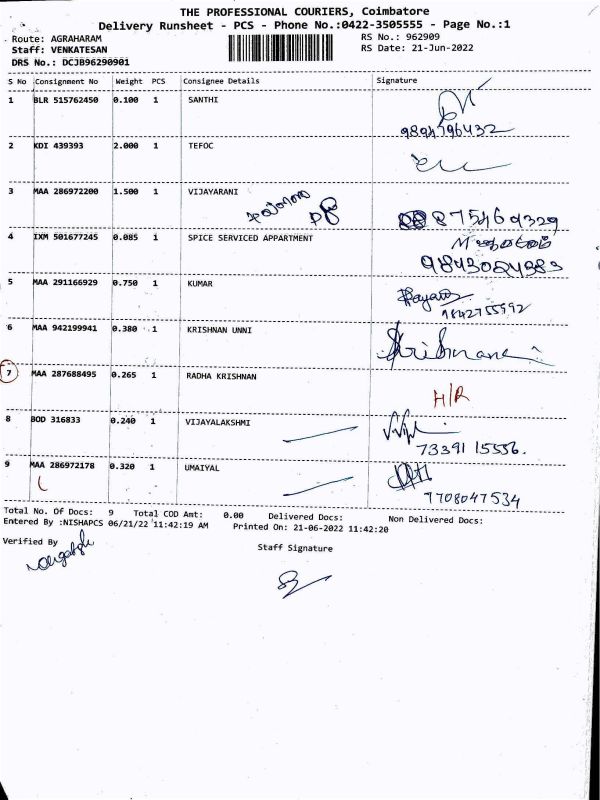 THE PROFESSIONAL COURIERS, Coimbatore
Delivery Runsheet - PCS - Phone No.:0422-3505555 - Page No.:1
Route: AGRAHARAM RS No.: 962909
Staff: VENKATESAN RS Date: 21-Jun-2022
DRS No.: DCJB96290901
S No Consignment No Weight PCS Consignee Details Signature
1 BLR 515762450 0.100 1 SANTHI
9894796432
2 KDI 439393 2.000 1 TEFOC
3 MAA 286972200 1.500 1 VIJAYARANI
875469329
4 IXM 501677245 0.085 1 SPICE SERVICED APPARTMENT
9843024383
5 MAA 291166929 0.750 1 KUMAR
9842755592
6 MAA 942199941 0.380 1 KRISHNAN UNNI
7 MAA 287688495 0.265 1 RADHA KRISHNAN
H/R
8 BOD 316833 0.240 1 VIJAYALAKSHMI
73391 15556.
9 MAA 286972178 0.320 1 UMAIYAL
7708047534
Total No. Of Docs: 9 Total COD Amt: 0.00 Delivered Docs: Non Delivered Docs:
Entered By :NISHAPCS 06/21/22 11:42:19 AM Printed On: 21-06-2022 11:42:20
Verified By
Staff Signature